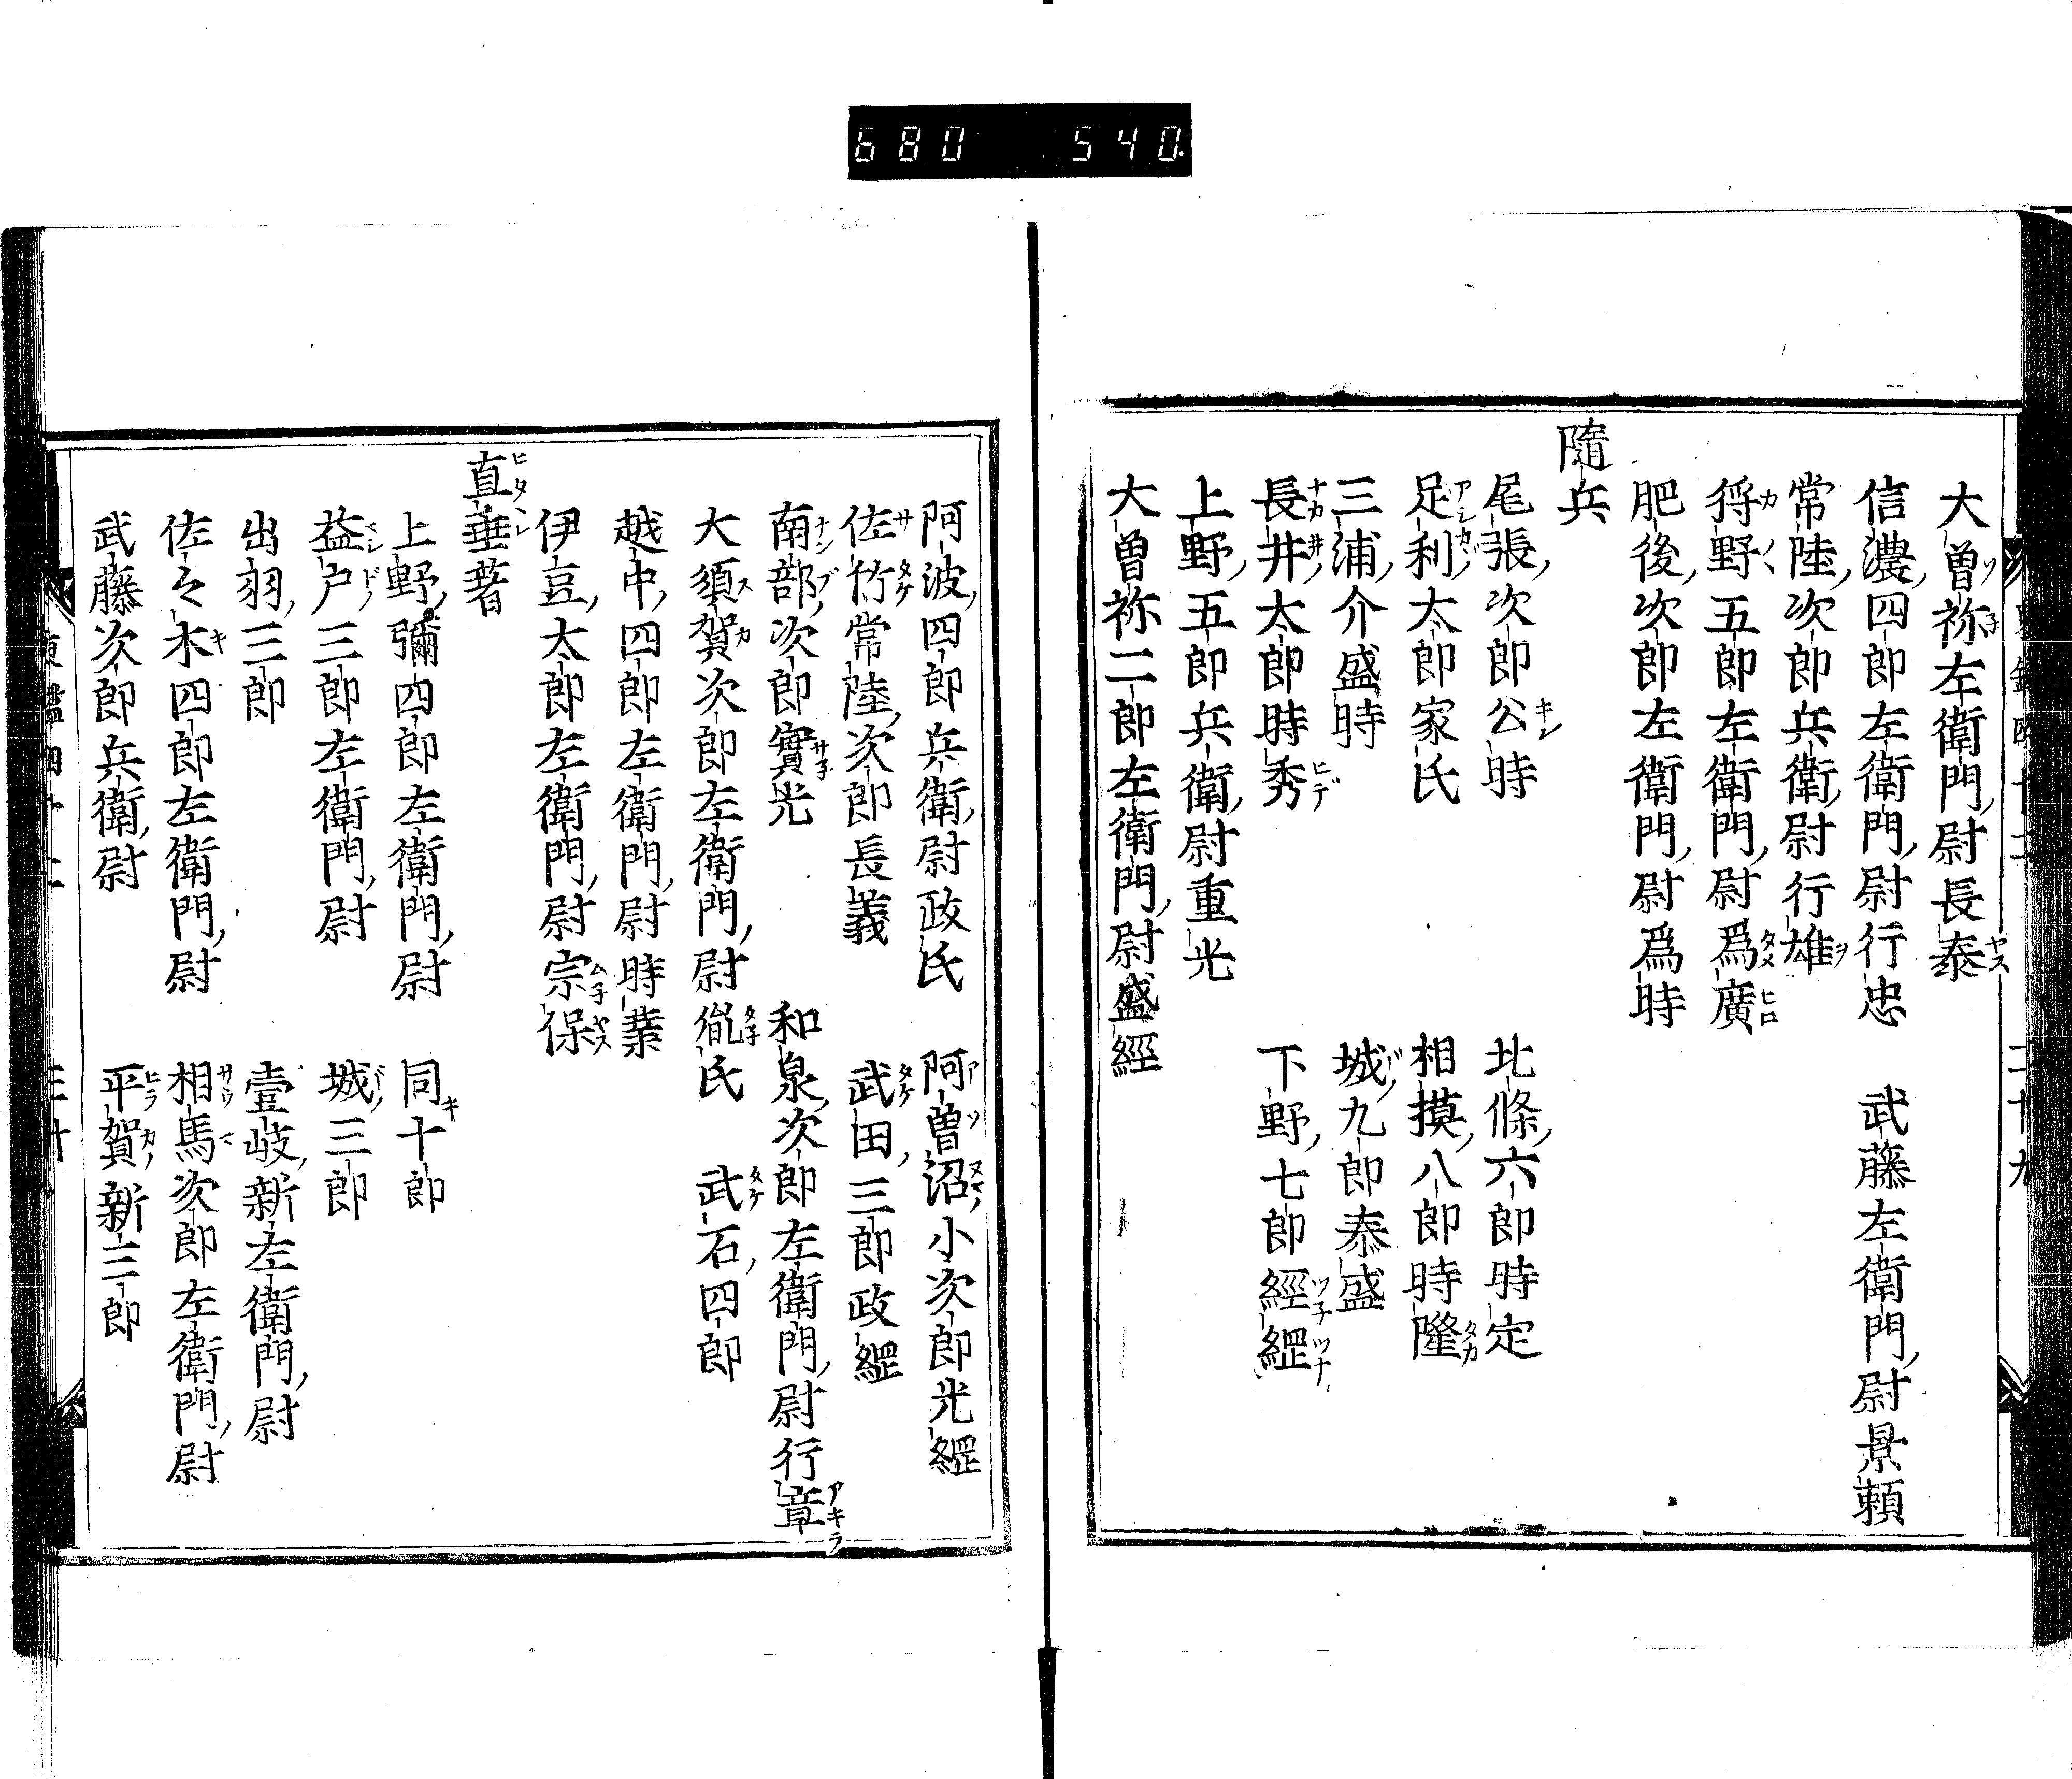 680 540.
大曽祢左衛門尉長泰
信濃四郎左衛門尉行忠 武藤左衛門尉景頼
常陸次郎兵衛尉行雄
狩野五郎左衛門尉爲廣
肥後次郎左衛門尉爲時
隨兵
尾張次郎公時 北條六郎時定
足利太郎家氏 相摸八郎時隆
三浦介盛時 城九郎泰盛
長井太郎時秀 下野七郎經綱
上野五郎兵衛尉重光
大曽祢二郎左衛門尉盛經
阿波四郎兵衛尉政氏 阿曽沼小次郎光綱
佐竹常陸次郎長義 武田三郎政綱
南部次郎實光 和泉次郎左衛門尉行章
大須賀次郎左衛門尉胤氏 武石四郎
越中四郎左衛門尉時業
伊豆太郎左衛門尉宗保
直垂著
上野彌四郎左衛門尉 同十郎
益戸三郎左衛門尉 城三郎
出羽三郎 壹岐新左衛門尉
佐々木四郎左衛門尉 相馬次郎左衛門尉
武藤次郎兵衛尉 平賀新三郎